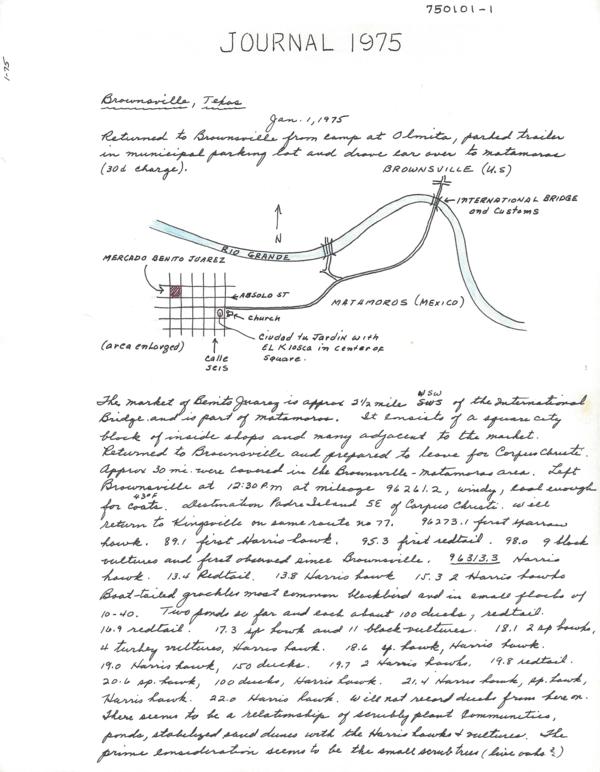 750101-1
JOURNAL 1975
1-75
Brownsville, Texas
Jan. 1, 1975
Returned to Brownsville from camp at Olmita, parked trailer
in municipal parking lot and drove car over to matamoros
(30¢ charge).
BROWNSVILLE (U.S)
INTERNATIONAL BRIDGE
and Customs
N
RIO GRANDE
MERCADO BENITO JUAREZ
ABSOLO ST
MATAMOROS (MEXICO)
church
Ciudad tu Jardin with
EL Kiosca in center of
square.
(area enlarged)
calle
seis
The market of Benito Juarez is approx 2 1/2 mile SWS WSW of the International
Bridge and is part of matamoros. It consists of a square city
block of inside shops and many adjacent to the market.
Returned to Brownsville and prepared to leave for Corpus Christi.
Approx 30 mi. were covered in the Brownsville-matamoros area. Left
Brownsville at 12:30 P.M at mileage 96261.2, windy, cool enough
43°F
for coats. Destination Padre Island SE of Corpus Christi. will
return to Kingsville on same route no 77. 96273.1 first sparrow
hawk. 89.1 first Harris hawk. 95.3 first redtail. 98.0 9 black
vultures and first observed since Brownsville. 96313.3 Harris
hawk. 13.4 Redtail. 13.8 Harris hawk 15.3 2 Harris hawks
Boat-tailed grackles most common blackbird and in small flocks of
10-40. Two ponds so far and each about 100 ducks, redtail.
16.9 redtail. 17.3 sp hawk and 11 black vultures. 18.1 2 sp hawks,
4 turkey vultures, Harris hawk. 18.6 sp. hawk, Harris hawk.
19.0 Harris hawk, 150 ducks. 19.7 2 Harris hawks. 19.8 redtail.
20.6 sp. hawk, 100 ducks, Harris hawk. 21.4 Harris hawk, sp. hawk,
Harris hawk. 22.0 Harris hawk. will not record ducks from here on.
There seems to be a relationship of scrubby plant communities,
ponds, stabilized sand dunes with the Harris hawks & vultures. The
prime consideration seems to be the small scrub trees (live oaks?)